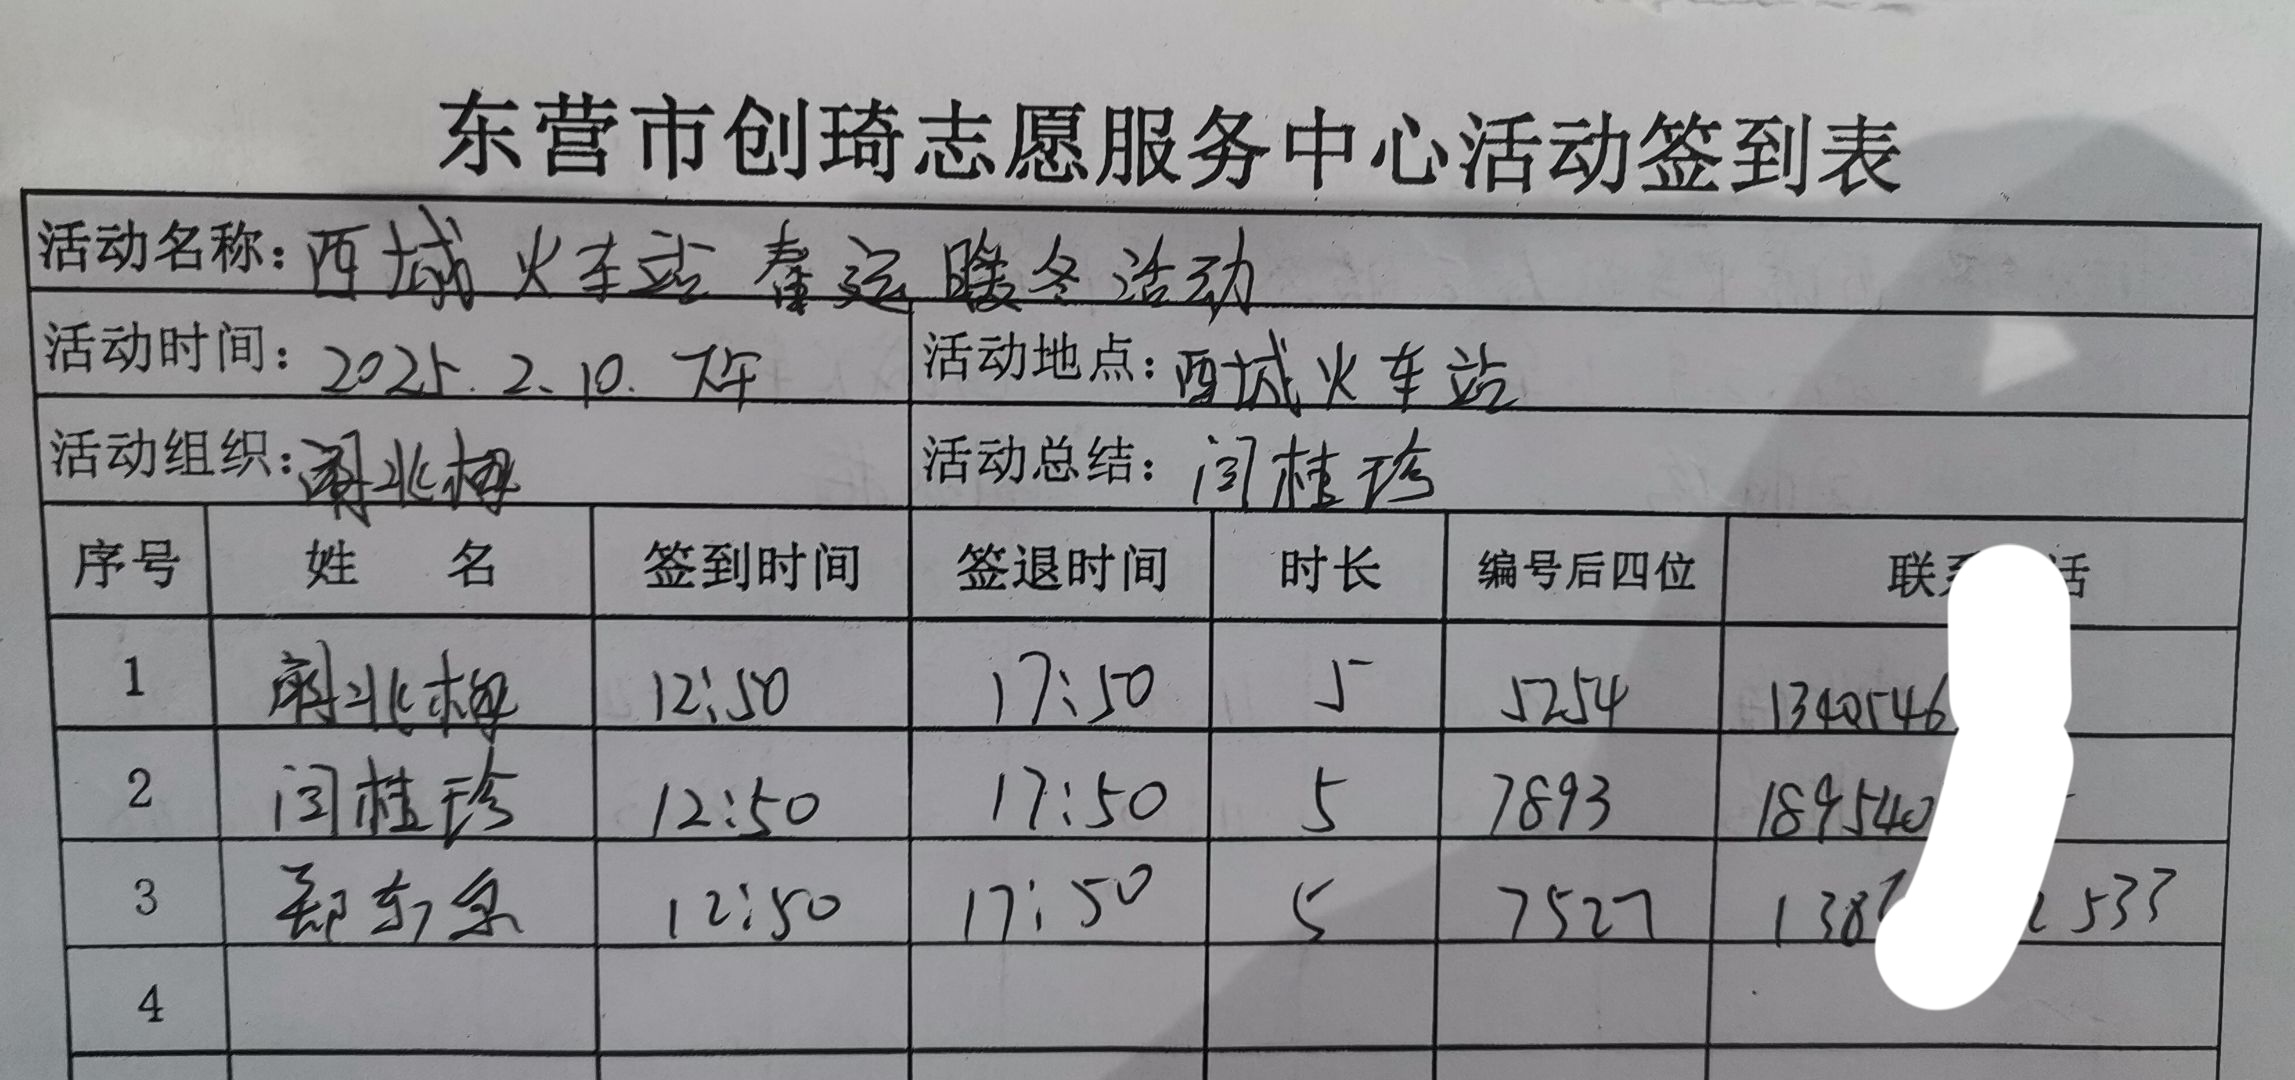 东营市创琦志愿服务中心活动签到表
活动名称：西城火车站春运暖冬活动
活动时间：2025.2.10.下午 活动地点：西城火车站
活动组织： 活动总结：闫桂珍
序号 姓名 签到时间 签退时间 时长 编号后四位 联系 话
1 12:50 17:50 5 5254 1340546
2 闫桂珍 12:50 17:50 5 7893 189540
3 12:50 17:50 5 7527 138 2533
4